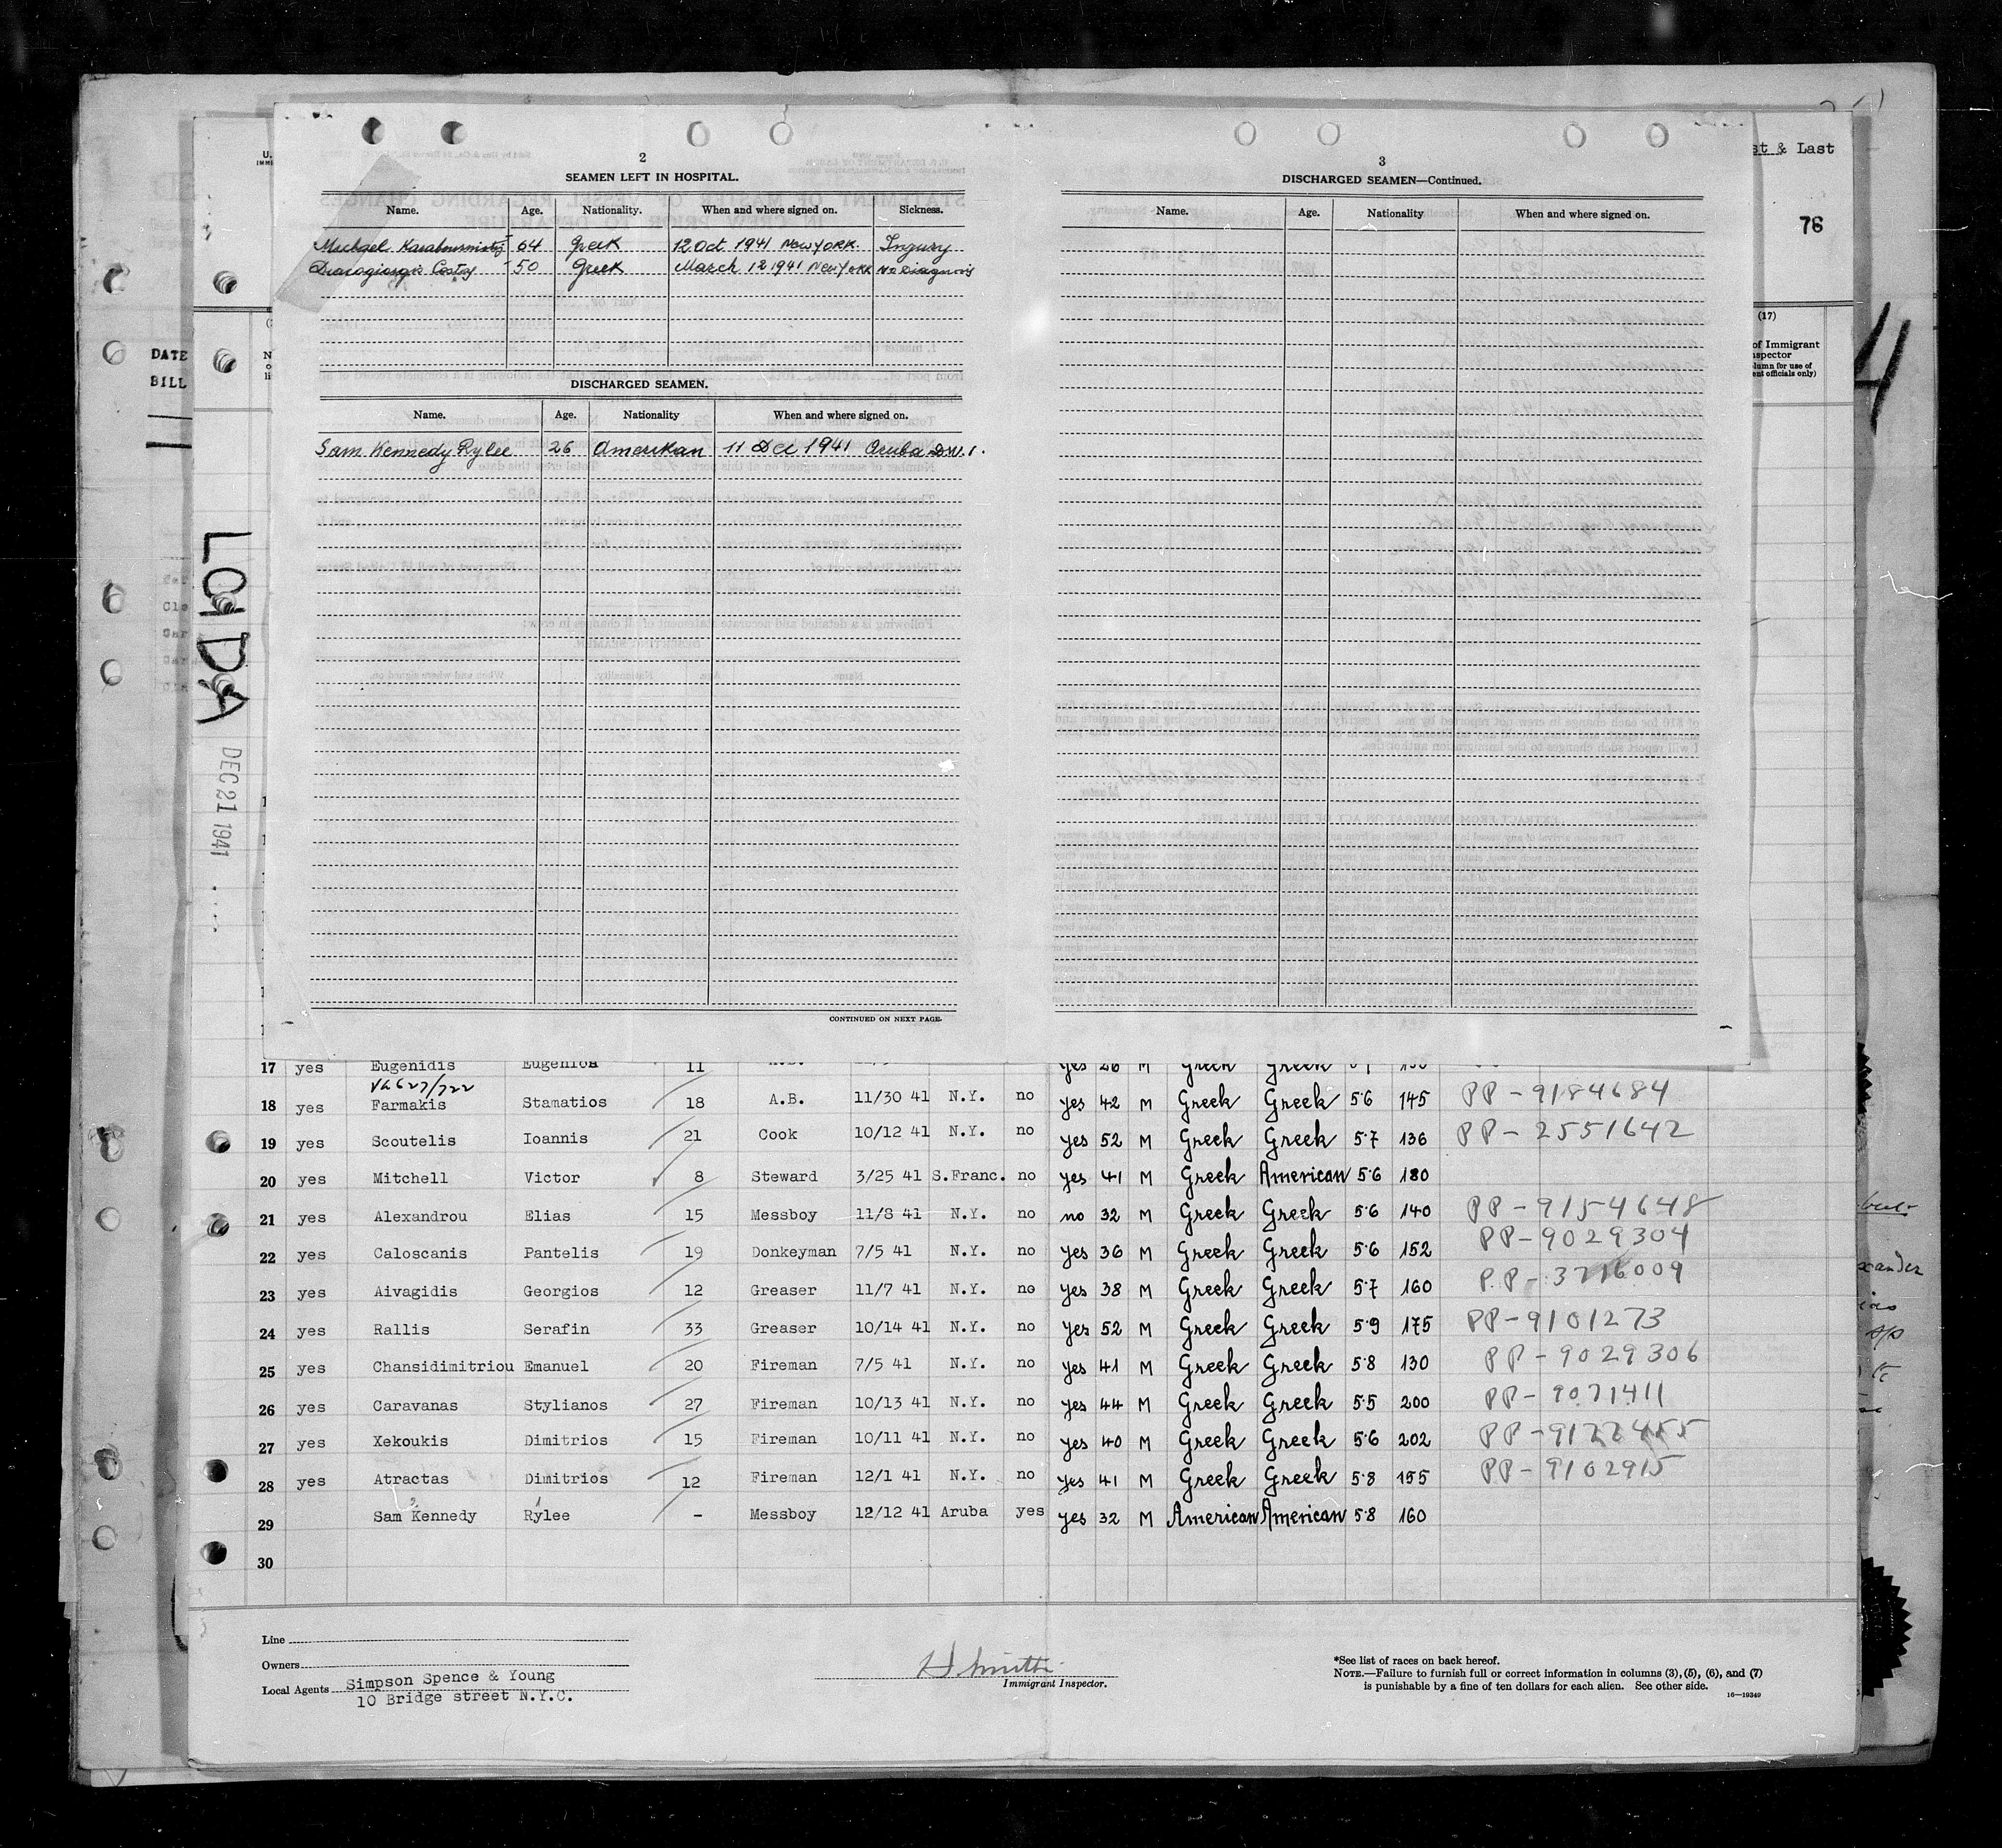 2
SEAMEN LEFT IN HOSPITAL.
Name. Age. Nationality. When and where signed on. Sickness.
Michael 64 Greek 12 Oct 1941 New York. Ingury
Costas 50 Greek March 12 1941 New York no Diagnosis
DISCHARGED SEAMEN.
Name. Age. Nationality When and where signed on.
Sam Kennedy Rylee 26 Amerikan 11 Dec 1941 Aruba D.W.I.
CONTINUED ON NEXT PAGE.
3
DISCHARGED SEAMEN—Continued.
Name. Age. Nationality When and where signed on.
st & Last
76
(17)
of Immigrant
spector
lumn for use of
ent officials only)
4
DATE
BILL
LOIDA
DEC 21 1941
17 yes Eugenidis Eugenios 11 yes 26 M Greek Greek
18 yes Farmakis Stamatios 18 A.B. 11/30 41 N.Y. no yes 42 M Greek Greek 5·6 145 PP-9184684
19 yes Scoutelis Ioannis 21 Cook 10/12 41 N.Y. no yes 52 M Greek Greek 5·7 136 PP-2551642
20 yes Mitchell Victor 8 Steward 3/25 41 S.Franc. no yes 41 M Greek American 5·6 180
21 yes Alexandrou Elias 15 Messboy 11/8 41 N.Y. no no 32 M Greek Greek 5·6 140 PP-9154648
22 yes Caloscanis Pantelis 19 Donkeyman 7/5 41 N.Y. no yes 36 M Greek Greek 5·6 152 PP-9029304
23 yes Aivagidis Georgios 12 Greaser 11/7 41 N.Y. no yes 38 M Greek Greek 5·7 160 P.P-3716009
24 yes Rallis Serafin 33 Greaser 10/14 41 N.Y. no yes 52 M Greek Greek 5·9 175 PP-9101273
25 yes Chansidimitriou Emanuel 20 Fireman 7/5 41 N.Y. no yes 41 M Greek Greek 5·8 130 PP-9029306
26 yes Caravanas Stylianos 27 Fireman 10/13 41 N.Y. no yes 44 M Greek Greek 5·5 200 PP-9071411
27 yes Xekoukis Dimitrios 15 Fireman 10/11 41 N.Y. no yes 40 M Greek Greek 5·6 202 PP-9122455
28 yes Atractas Dimitrios 12 Fireman 12/1 41 N.Y. no yes 41 M Greek Greek 5·8 155 PP-9102915
29 Sam Kennedy Rylee - Messboy 12/12 41 Aruba yes yes 32 M American American 5·8 160
30
Line
Owners
Local Agents Simpson Spence & Young
10 Bridge street N.Y.C.
H Smith
Immigrant Inspector.
*See list of races on back hereof.
NOTE.—Failure to furnish full or correct information in columns (3), (5), (6), and (7)
is punishable by a fine of ten dollars for each alien. See other side.
16—19349